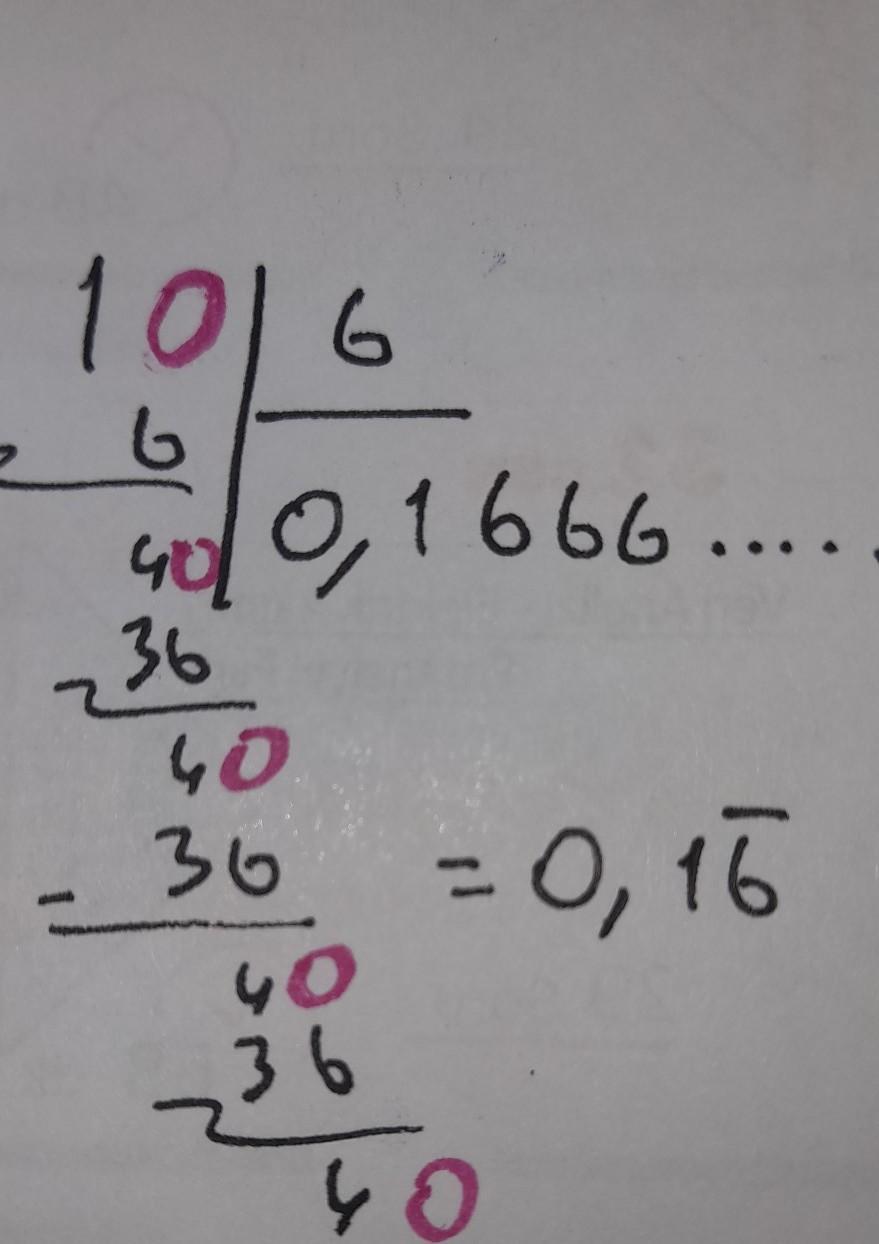 10 | 6
- 6
0,1666.....
40
- 36
40
- 36
= 0,16̅
40
- 36
40